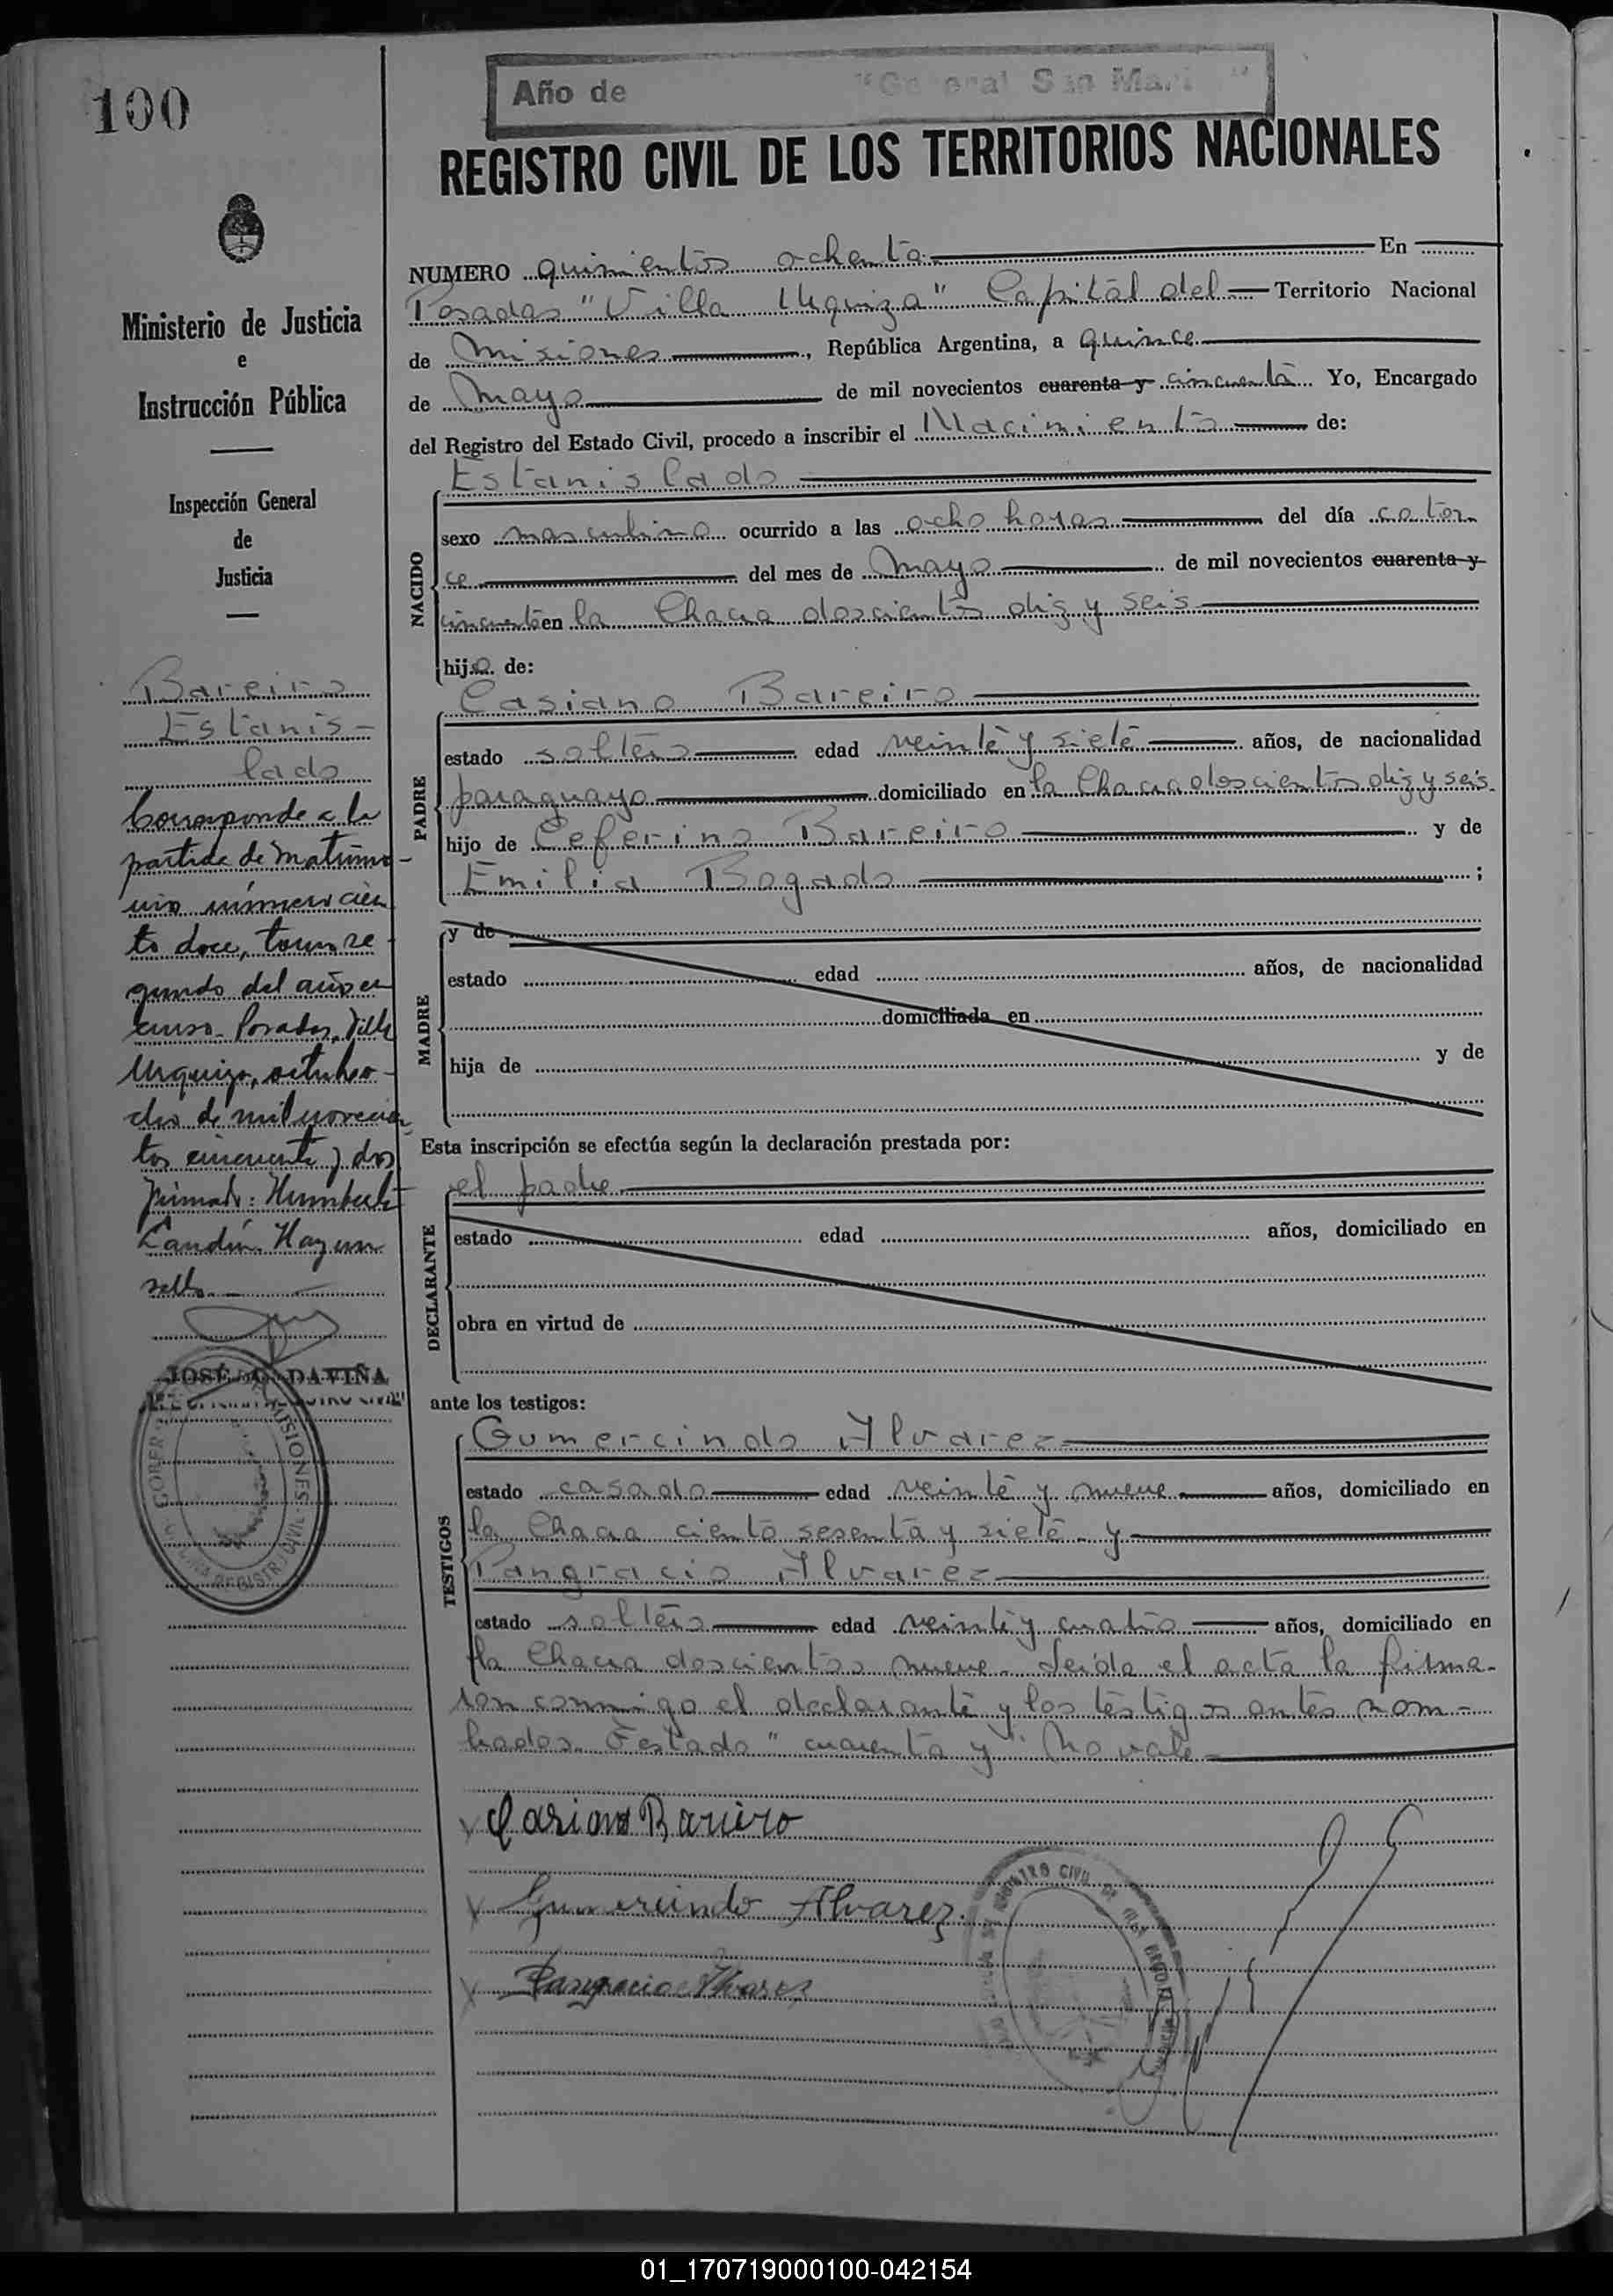 100
Año de "General San Martín"
REGISTRO CIVIL DE LOS TERRITORIOS NACIONALES
Ministerio de Justicia
e
Instrucción Pública
Inspección General
de
Justicia
Bareiro
Estanis-
lado
Corresponde a la
partida de matrimo-
nio número cien
to doce, tomo se-
gundo del año en
curso. Posadas, Villa
Urquiza, octubre
de mil novecien
tos cincuenta y dos
Firmado: Humberto
Landín. Hay un
sello.
JOSÉ DAVIÑA
NUMERO quinientos ochenta En
Posadas "Villa Urquiza" Capital del Territorio Nacional
de Misiones, República Argentina, a quince
de mayo de mil novecientos cuarenta y cincuenta Yo, Encargado
del Registro del Estado Civil, procedo a inscribir el Nacimiento de:
NACIDO
Estanislado
sexo masculino ocurrido a las ocho horas del día cator-
ce del mes de mayo de mil novecientos cuarenta y
cincuenta en la Chacra doscientos diz y seis
hijo de:
PADRE
Casiano Bareiro
estado soltero edad veinte y siete años, de nacionalidad
paraguayo domiciliado en la Chacra doscientos diz y seis-
hijo de Ceferino Bareiro y de
Emilia Bogado ;
MADRE
y de
estado edad años, de nacionalidad
domiciliada en
hija de y de
Esta inscripción se efectúa según la declaración prestada por:
DECLARANTE
el padre
estado edad años, domiciliado en
obra en virtud de
ante los testigos:
TESTIGOS
Gumercindo Alvarez
estado casado edad veinte y nueve años, domiciliado en
la Chacra ciento sesenta y siete y
Pangracio Alvarez
estado soltero edad veinte y cuatro años, domiciliado en
la Chacra doscientos nueve. Leída el acta la firma-
ron conmigo el declarante y los testigos antes nom-
brados. Testado "cuarenta y" No vale
Casiano Bareiro
Gumercindo Alvarez
Pangracio Alvarez
01_170719000100-042154